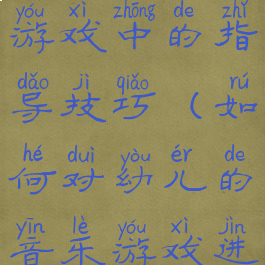 yóu xì zhōng de zhǐ
游戏中的指
dǎo jì qiǎo rú
导技巧(如
hé duì yòu ér de
何对幼儿的
yīn lè yóu xì jìn
音乐游戏进